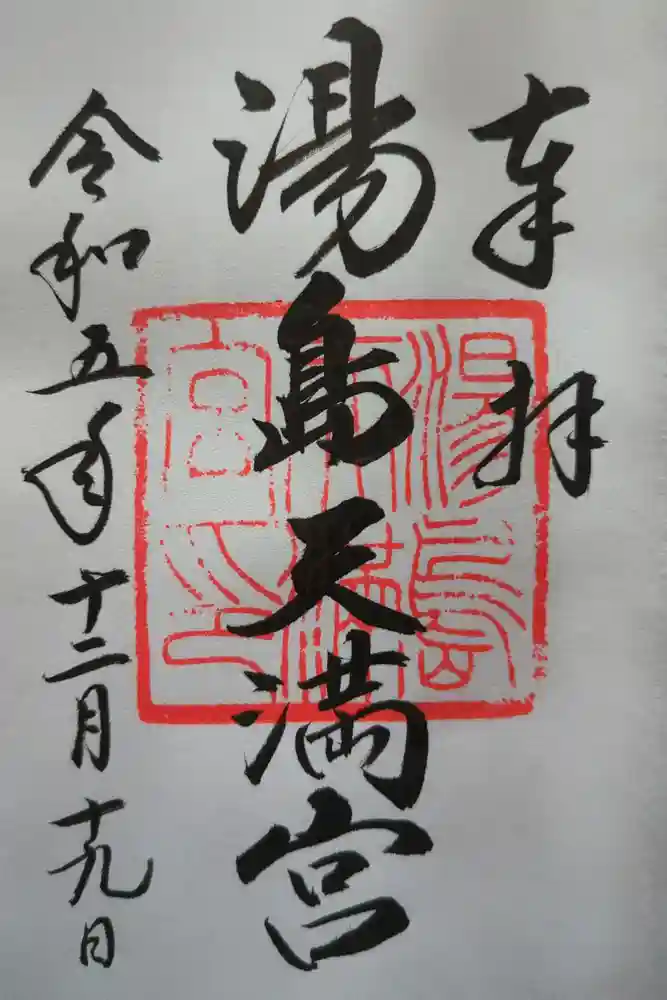 奉拝
湯島天満宮
令和五年十二月十九日
湯島
天満
宮印